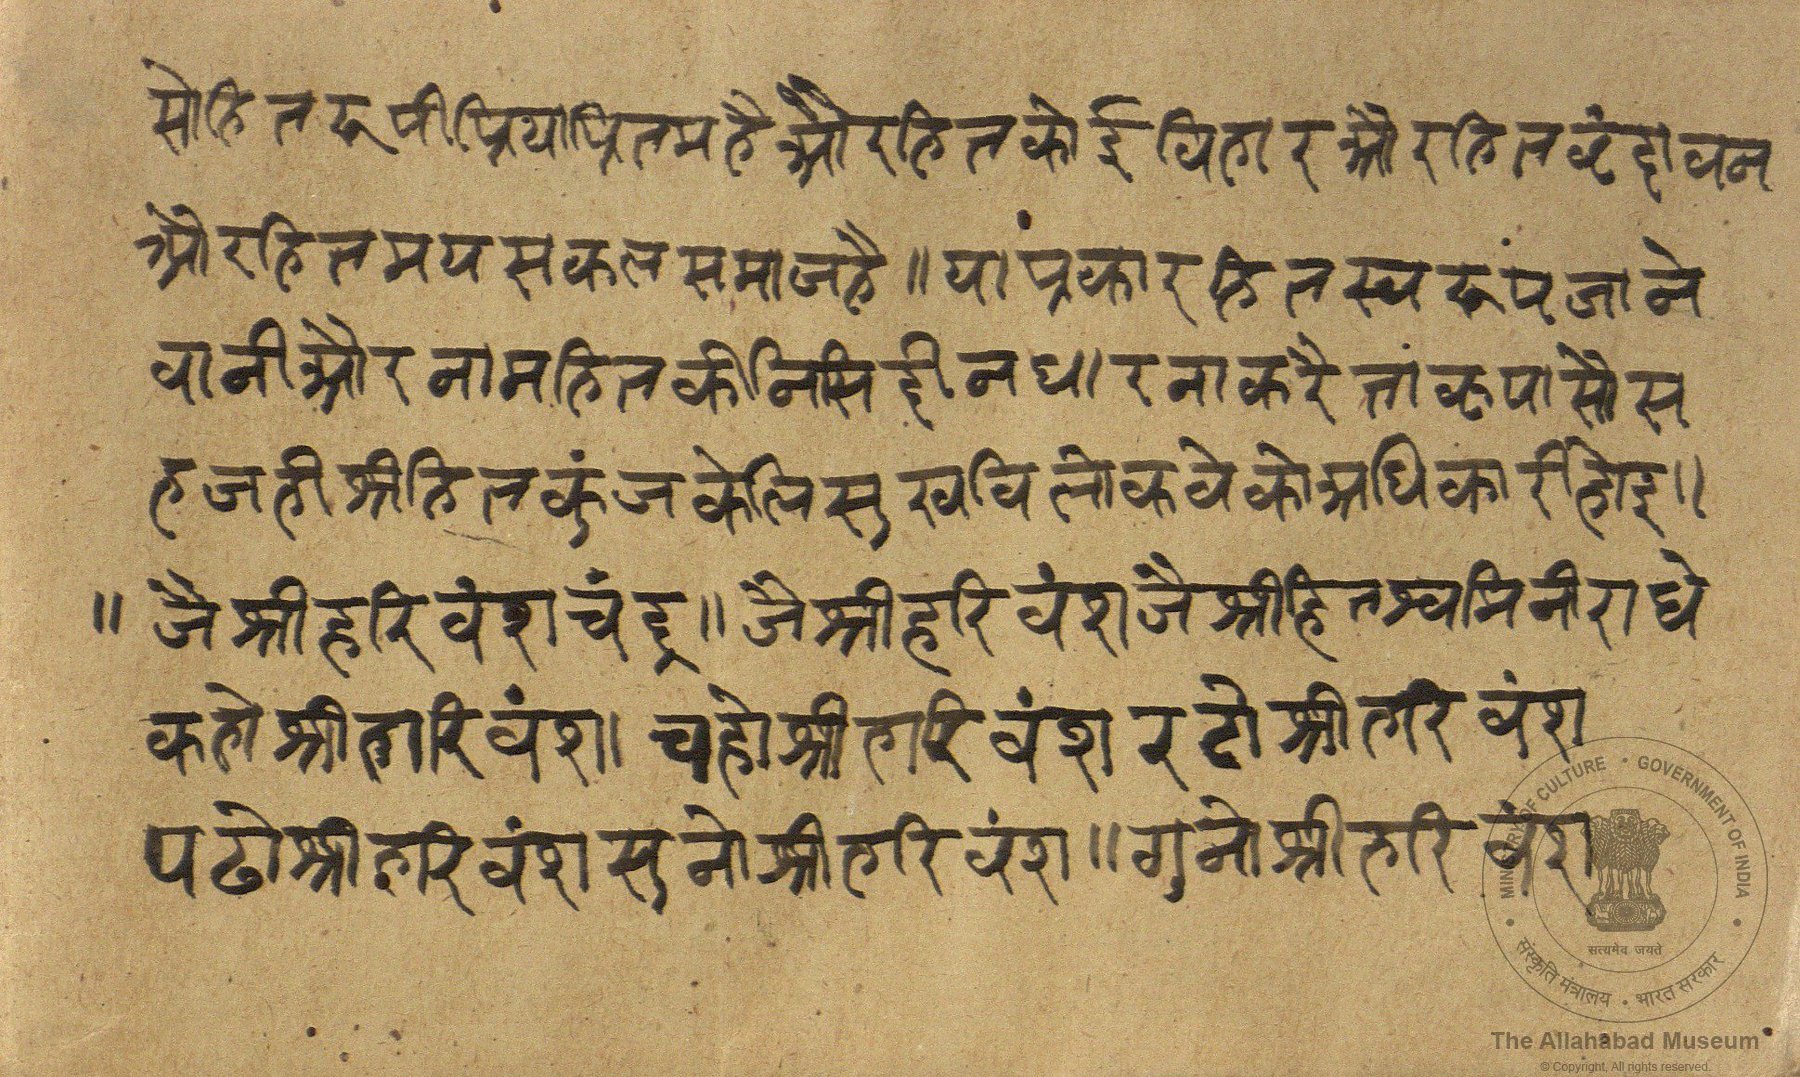 सोहितरूपीप्रियाप्रितमहैऔरहितकोईविहारऔरहितवृंदावन
औरहितमयसकलसमाजहै॥याप्रंकारहितस्वरूपंजाने
वानीऔरनामहितकीनिसिद्दीनधारनाकरैतांकृपासौस
हजहीश्रीहितकुंजकेलिसुखविलोकवेकोअधिकारीहोइ॥
॥ जैश्रीहरिवंशचंद्र॥जैश्रीहरिवंशजैश्रीहितश्वामिनीराधे
कहोश्रीहरिवंश।चहोश्रीहरिवंशरटोश्रीहरिवंश
पढोश्रीहरिवंशसुनोश्रीहरिवंश॥गुनोश्रीहरिवंश
MINISTRY OF CULTURE • GOVERNMENT OF INDIA
सत्यमेव जयते
संस्कृति मंत्रालय • भारत सरकार
The Allahabad Museum
© Copyright, All rights reserved.